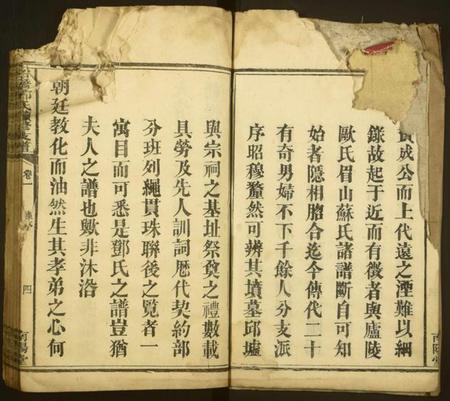 成公而上代遠之湮難以綱
錄故起于近而有徵者與廬陵
歐氏眉山蘇氏諸譜斷自可知
始者隱相脗合迄今傳代二十
有奇男婦不下千餘人分支派
序昭穆釐然可辨其墳墓邱壠
與宗祠之基址祭奠之禮數載
具勞及先人訓詞歷代契約部
分班列繩貫珠聯後之覧者一
寓目而可悉是鄧氏之譜豈猶
夫人之譜也歟非沐浴
朝廷教化而油然生其孝弟之心何
卷一
四
南陽堂